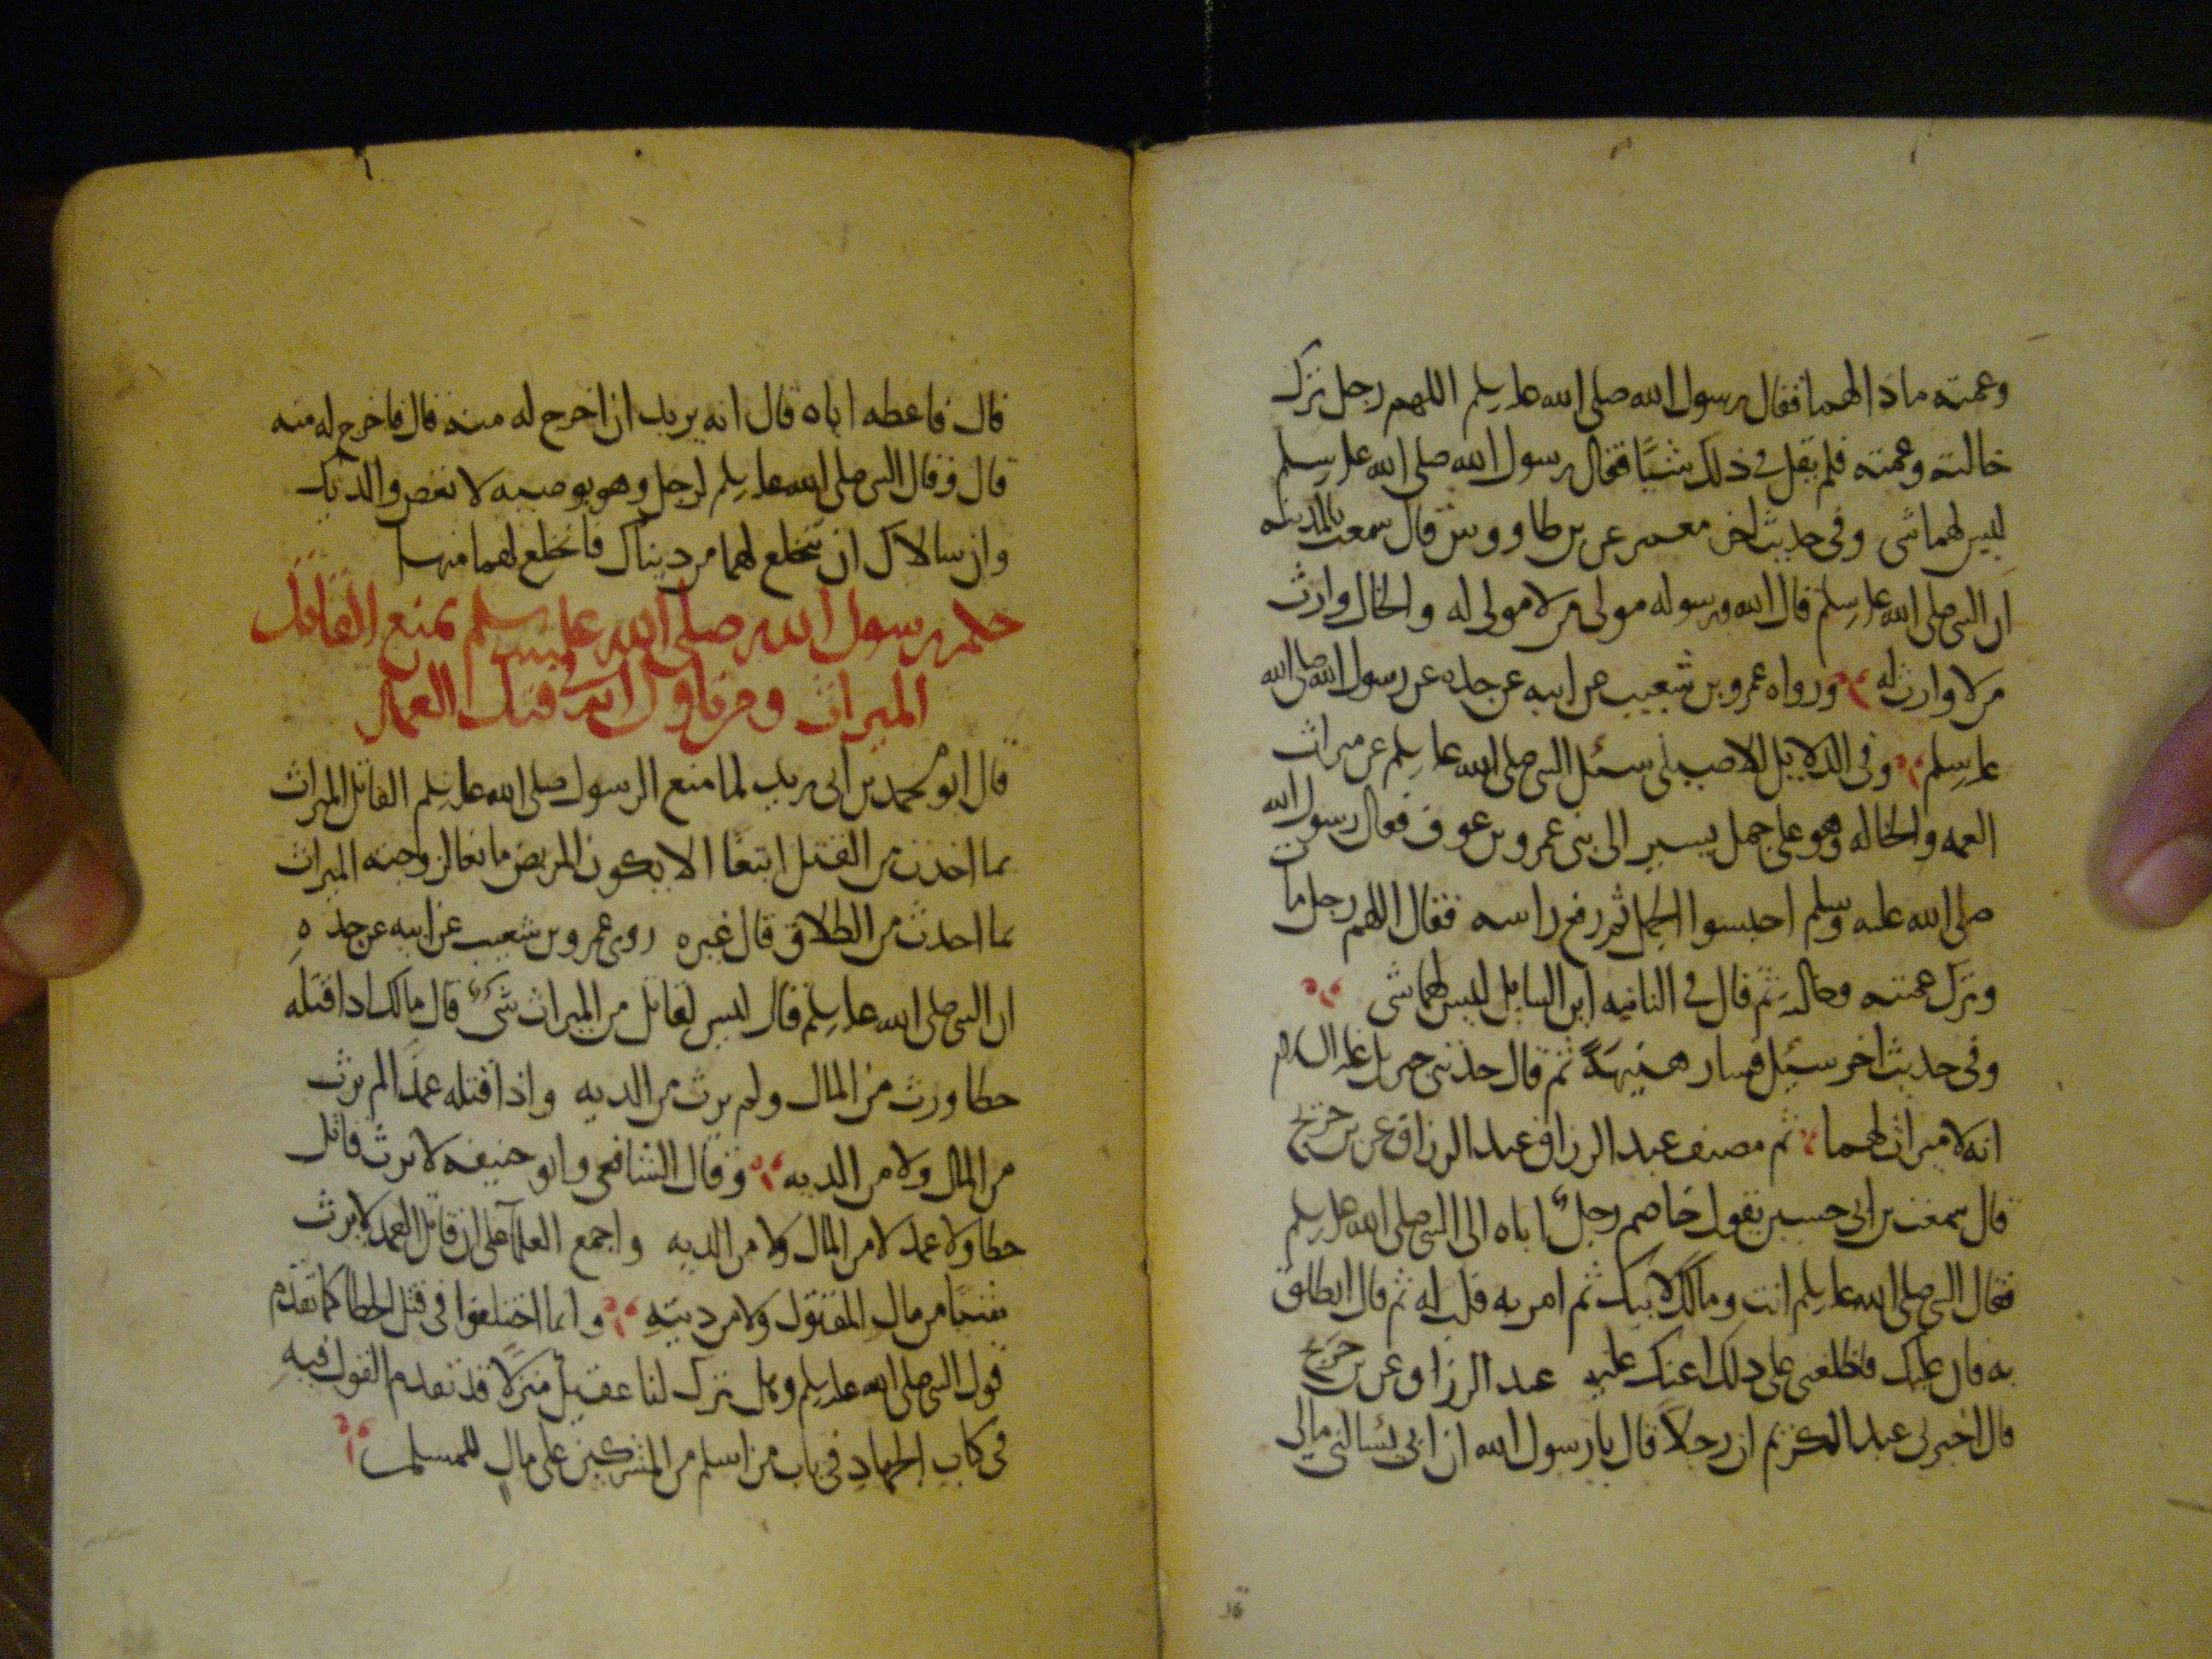 وعمته ماذا لهما فقال رسول الله صلى الله عليه وسلم اللهم رجل ترك
خالته وعمته فلم يقل في ذلك شيًا فقال رسول الله صلى الله عليه وسلم
ليس لهما شي وفي حديث اخر معمر عن بن طاووس قال سمعت بالمدينه
ان النبي صلى الله عليه وسلم قال الله ورسوله مولى من لا مولى له والخال وارث
من لا وارث له ورواه عمرو بن شعيب عن ابيه عن جده عن رسول الله صلى الله
عليه وسلم وفي الدلايل للاصيلي سئل النبي صلى الله عليه وسلم عن ميراث
العمه والخاله وهو على جمل يسير الى بني عمرو بن عوف فقال رسول الله
صلى الله عليه وسلم احبسوا الجمل ثم رفع راسه فقال اللهم رجل مات
وترك عمته وخالته ثم قال في الثانيه اين السايل ليس لهما شي
وفي حديث اخر سئل فسار هنيهة ثم قال حدثني جبريل عليه السلام
انه لا ميراث لهما ثم مصنف عبد الرزاق عبد الرزاق عن بن جريج
قال سمعت بن ابي حسين يقول خاصم رجل اباه الى النبي صلى الله عليه وسلم
فقال النبي صلى الله عليه وسلم انت ومالك لابيك ثم امر به قلت له ثم قال انطلق
به فان عليك فاطلعني على ذلك اعنك عليه عبد الرزاق عن بن جريج
قال اخبرني عبد الكريم ان رجلا قال يا رسول الله ان ابي يسالني مالي
قال فاعطه اياه قال انه يريد ان اخرج له منه قال فاخرج له منه
قال وقال النبي صلى الله عليه وسلم لرجل وهو يوصيه لا تعص والديك
وان سالاك ان تنخلع لهما من دنياك فانخلع لهما منها
حكم رسول الله صلى الله عليه وسلم بمنع القاتل
الميراث ومن تاول انه في قتل العمد
قال ابو محمد بن ابي زيد لما منع الرسول صلى الله عليه وسلم القاتل الميراث
بما احدث من القتل ابتغا الا يكون المريض مانعا لزوجته الميراث
بما احدث من الطلاق قال غيره روى عمرو بن شعيب عن ابيه عن جده
ان النبي صلى الله عليه وسلم قال ليس لقاتل من الميراث شي قال مالك اذا قتله
خطا ورث من المال ولم يرث من الديه واذا قتله عمدا لم يرث
من المال ولا من الديه وقال الشافعي وابو حنيفه لا يرث قاتل
خطا ولا عمد لا من المال ولا من الديه واجمع العلما على ان قاتل العمد لا يرث
شيًا من مال المقتول ولا من ديته وانما اختلفوا في قتل الخطا كما تقدم
قول النبي صلى الله عليه وسلم وهل ترك لنا عقيل منزلا قد تقدم القول فيه
في كتاب الجهاد في باب من اسلم من المشركين على مال للمسلمين